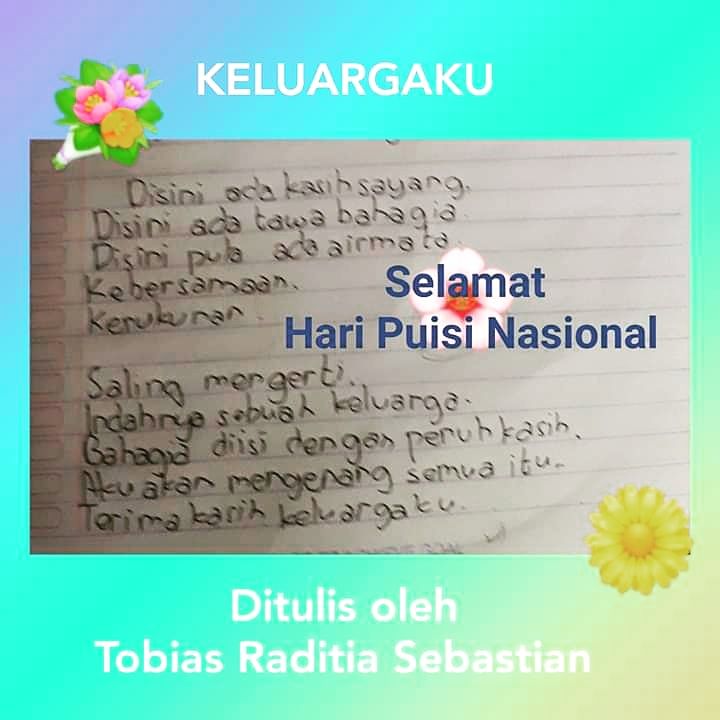 KELUARGAKU
Disini ada kasih sayang.
Disini ada tawa bahagia.
Disini pula ada airmata.
Kebersamaan.
Kerukunan.
Selamat
Hari Puisi Nasional
Saling mengerti.
Indahnya sebuah keluarga.
Bahagia diisi dengan penuh kasih.
Aku akan mengenang semua itu.
Terima kasih keluargaku.
Ditulis oleh
Tobias Raditia Sebastian